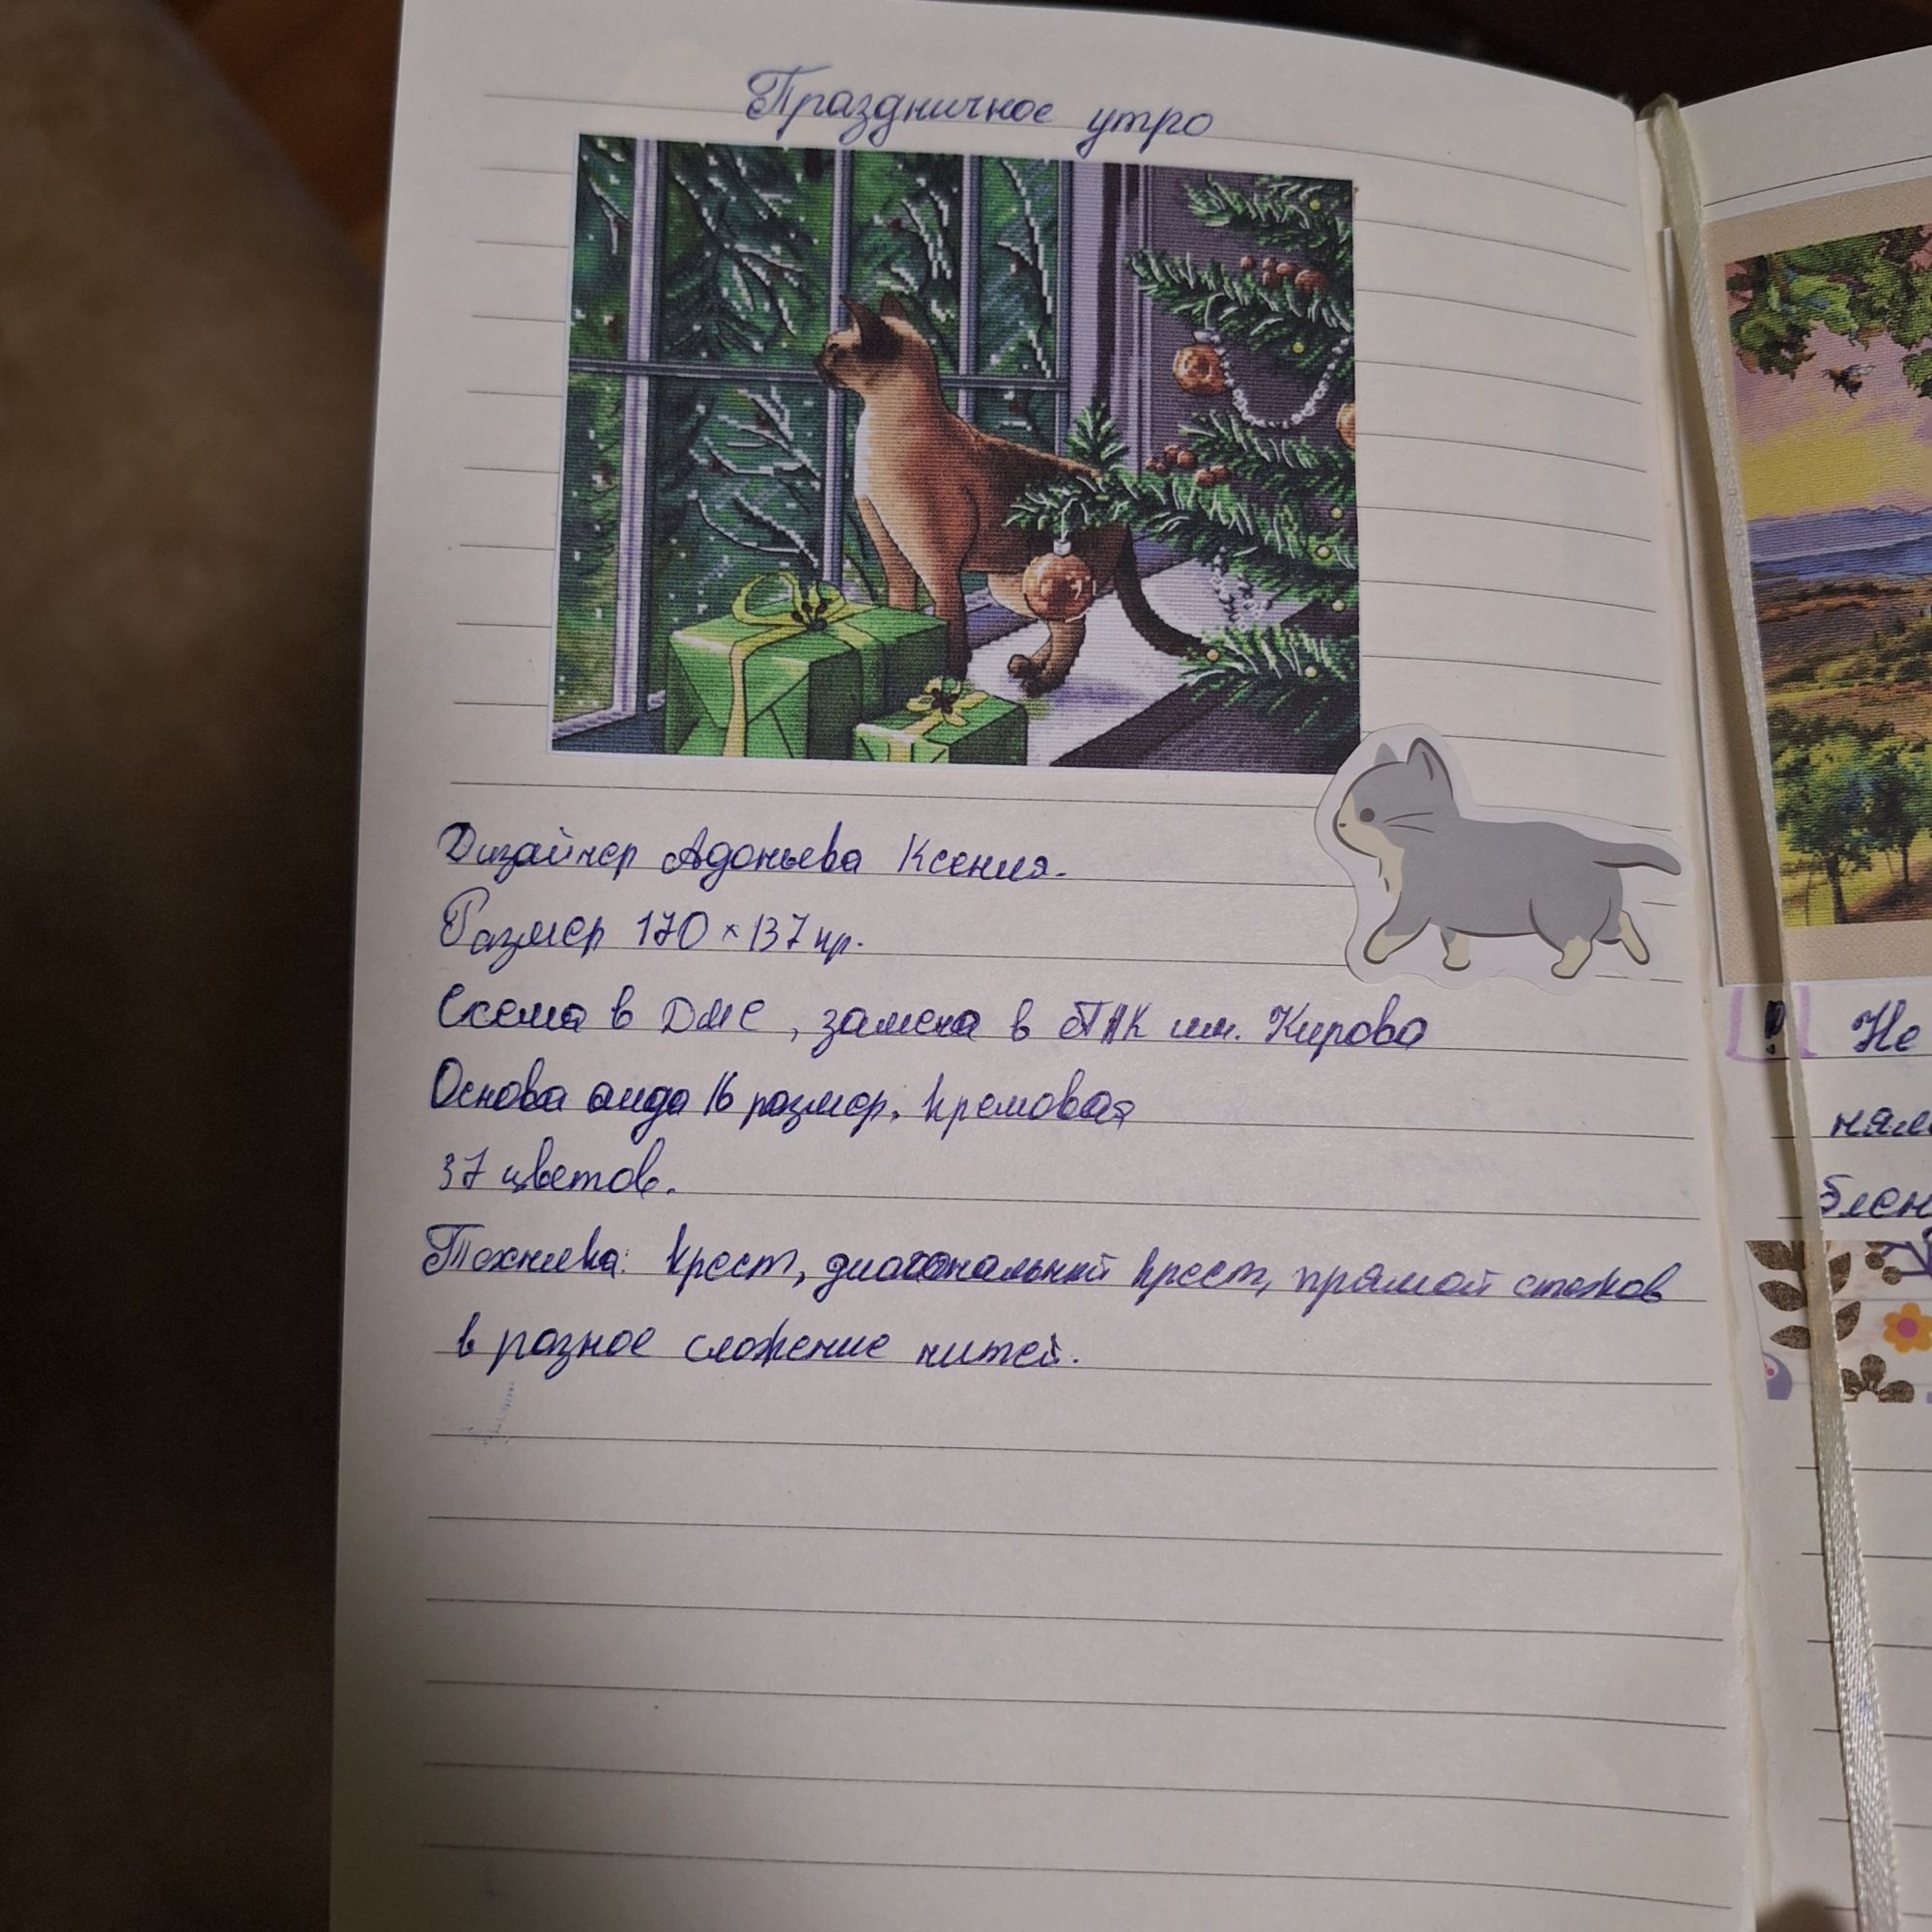 Праздничное утро
Дизайнер Адоньева Ксения.
Размер 170 × 137 кр.
Схема в ДМС, замена в ПНК им. Кирова
Основа аида 16 размер. кремовая
37 цветов.
Техника: крест, диагональный крест, прямой стежков
в разное сложение нитей.
! Не